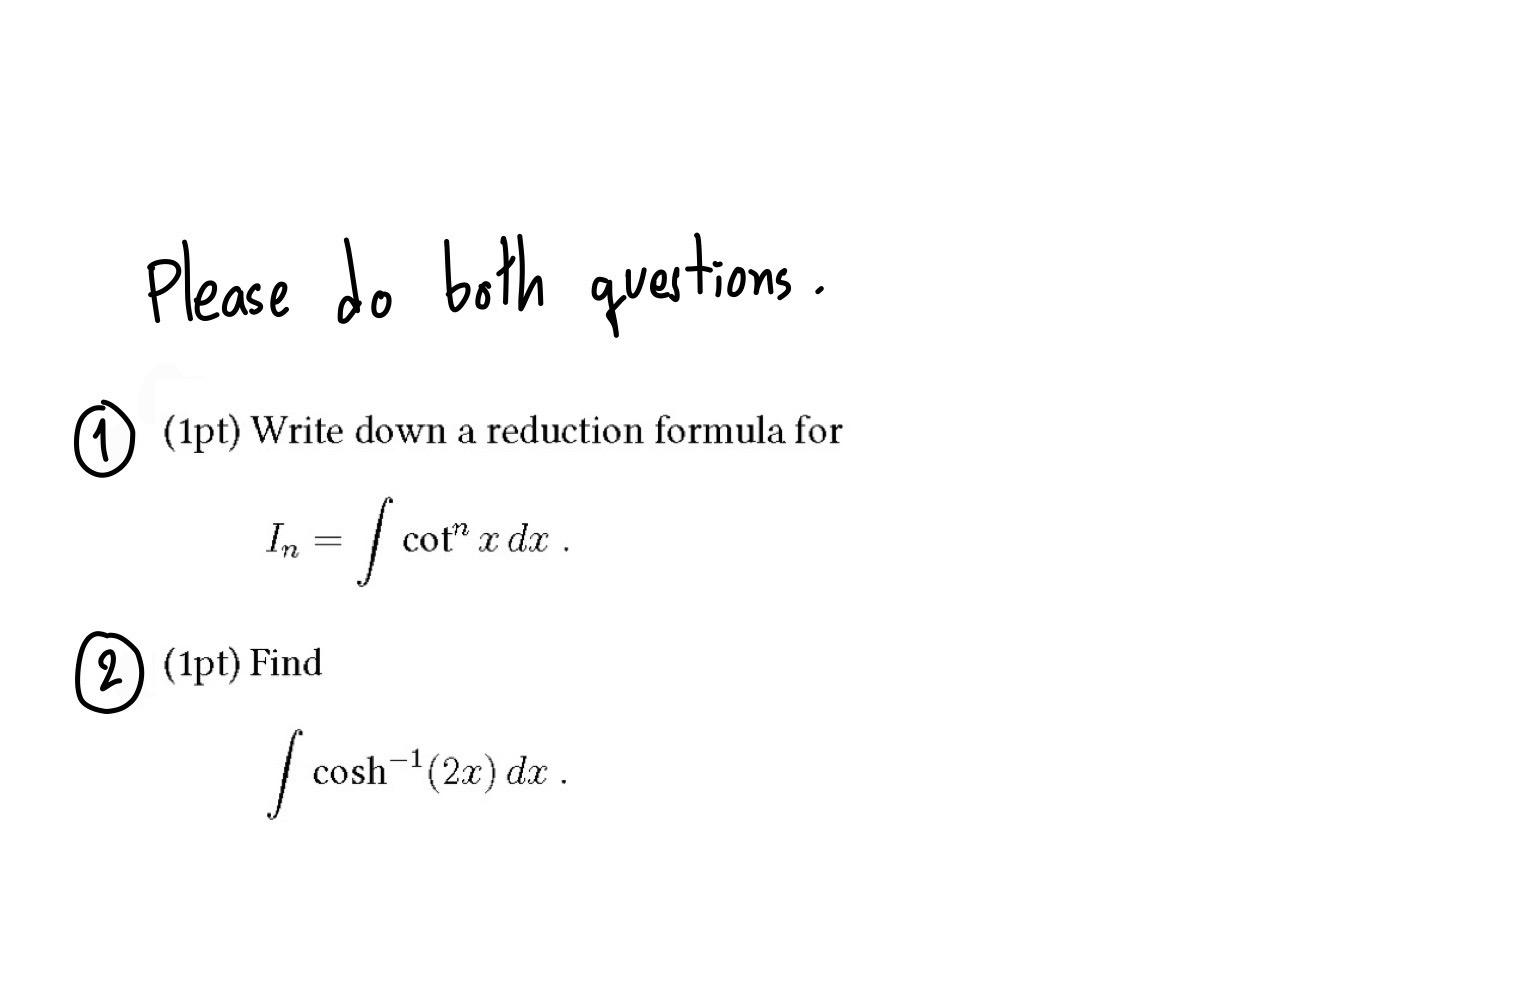 Please do both questions.
① (1pt) Write down a reduction formula for
Iₙ = ∫ cotⁿ x dx .
② (1pt) Find
∫ cosh⁻¹(2x) dx .